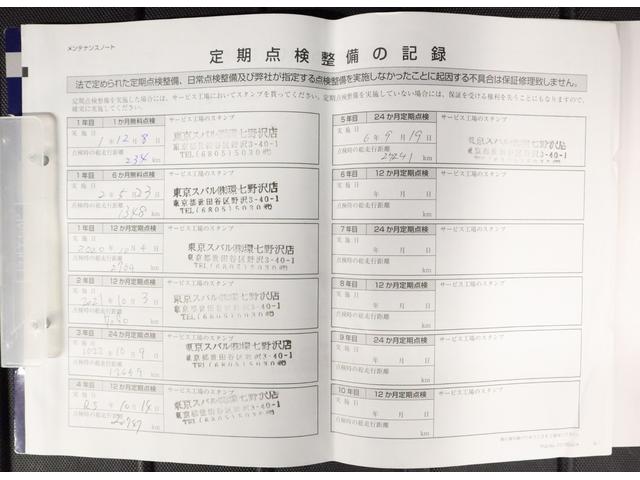 メンテナンスノート
定期点検整備の記録
法で定められた定期点検整備、日常点検整備及び弊社が指定する点検整備を実施しなかったことに起因する不具合は保証修理致しません。
定期点検整備を実施した場合には、サービス工場においてスタンプを貰ってください。定期点検整備を実施していない場合には、保証を受ける権利を失うことにもなりますので、
確実に実施してください。
1年目 1か月無料点検 サービス工場のスタンプ
実施日
1年12月8日
東京スバル㈱環七野沢店
東京都世田谷区野沢3-40-1
TEL(6805)5030㈹
点検時の総走行距離
234 km
1年目 6か月無料点検 サービス工場のスタンプ
実施日
2年5月23日
東京スバル㈱環七野沢店
東京都世田谷区野沢3-40-1
TEL(6805)5030㈹
点検時の総走行距離
1348 km
1年目 12か月定期点検 サービス工場のスタンプ
実施日
2020年10月4日
東京スバル㈱環七野沢店
東京都世田谷区野沢3-40-1
TEL(6805)5030㈹
点検時の総走行距離
2704 km
2年目 12か月定期点検 サービス工場のスタンプ
実施日
2021年10月3日
東京スバル㈱環七野沢店
東京都世田谷区野沢3-40-1
TEL(6805)5030㈹
点検時の総走行距離
km
3年目 24か月定期点検 サービス工場のスタンプ
実施日
2022年10月9日
東京スバル㈱環七野沢店
東京都世田谷区野沢3-40-1
TEL(6805)5030㈹
点検時の総走行距離
km
4年目 12か月定期点検 サービス工場のスタンプ
実施日
R5年10月14日
東京スバル㈱環七野沢店
東京都世田谷区野沢3-40-1
TEL(6805)5030㈹
点検時の総走行距離
km
5年目 24か月定期点検 サービス工場のスタンプ
実施日
6年9月19日
東京スバル㈱環七野沢店
東京都世田谷区野沢3-40-1
点検時の総走行距離
27241 km
6年目 12か月定期点検 サービス工場のスタンプ
実施日
年 月 日
点検時の総走行距離
km
7年目 24か月定期点検 サービス工場のスタンプ
実施日
年 月 日
点検時の総走行距離
km
8年目 12か月定期点検 サービス工場のスタンプ
実施日
年 月 日
点検時の総走行距離
km
9年目 24か月定期点検 サービス工場のスタンプ
実施日
年 月 日
点検時の総走行距離
km
10年目 12か月定期点検 サービス工場のスタンプ
実施日
年 月 日
点検時の総走行距離
km